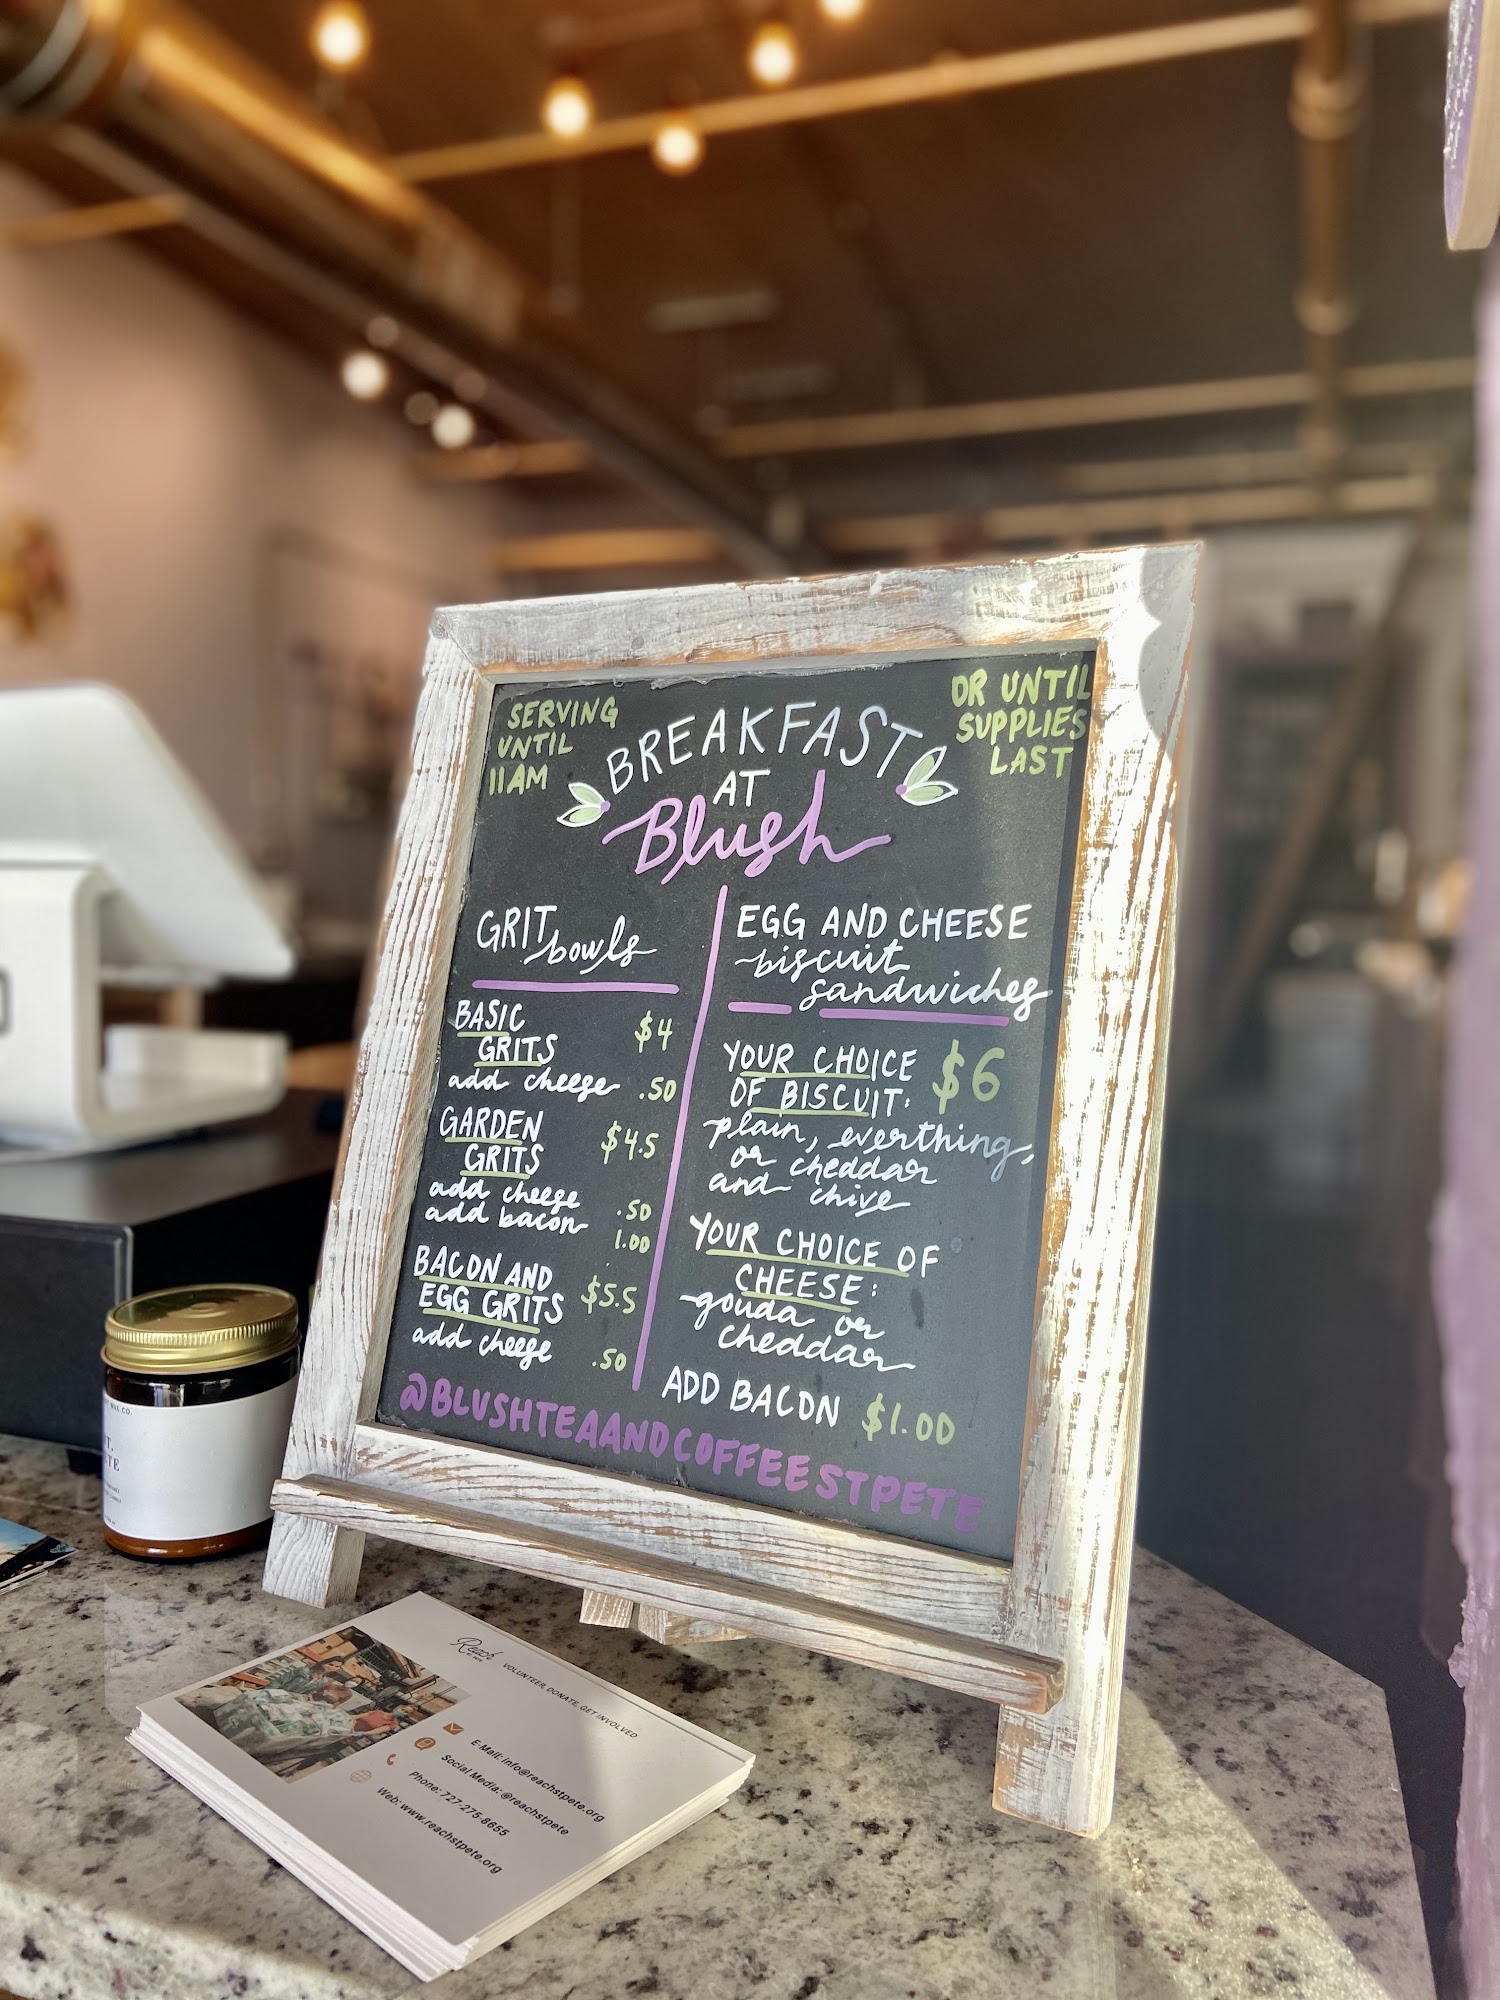 SERVING
UNTIL
11AM
OR UNTIL
SUPPLIES
LAST
BREAKFAST
AT
Blush
GRIT bowls
BASIC
GRITS $4
add cheese .50
GARDEN
GRITS $4.5
add cheese .50
add bacon 1.00
BACON AND
EGG GRITS $5.5
add cheese .50
EGG AND CHEESE
biscuit
sandwiches
YOUR CHOICE
OF BISCUIT: $6
plain, everthing,
or cheddar
and chive
YOUR CHOICE OF
CHEESE:
gouda or
cheddar
ADD BACON $1.00
@BLUSHTEAANDCOFFEESTPETE
Reach
VOLUNTEER, DONATE, GET INVOLVED
E-Mail: info@reachstpete.org
Social Media: @reachstpete
Phone: 727-275-8655
Web: www.reachstpete.org